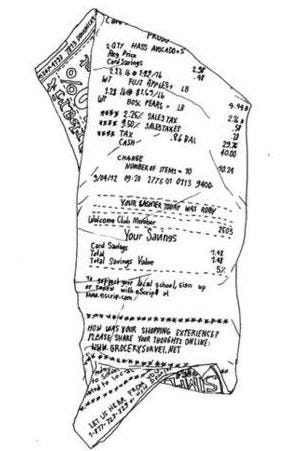 Care
PRODU
2 QTY HASS AVOCADO+S
Reg Price 2.98
Card Savings .98
2.33 lb @ 1.99/lb
WT FUJI APPLES+ LB 4.94 B
1.28 lb @ $1.69/lb
WT BOSC PEARS+ LB 2.16 B
**** 2.26% SALES TAX .58
**** 9.50% SALES TAXES .28
**** TAX .86 BAL 29.76
CASH 40.00
CHANGE 10.24
NUMBER OF ITEMS = 10
9/04/12 09:20 2775 01 0113 9400
YOUR CASHIER TODAY WAS RUBY
Welcome Club Member 2503
Your Savings
Card Savings 1.48
Total 1.48
Total Savings Value 5%
To support your local school, sign up
or renew with eScrip at
www.escrip.com
HOW WAS YOUR SHOPPING EXPERIENCE?
PLEASE SHARE YOUR THOUGHTS ONLINE:
WWW.GROCERYSURVEY.NET
LET US HEAR FROM
1-877-723-